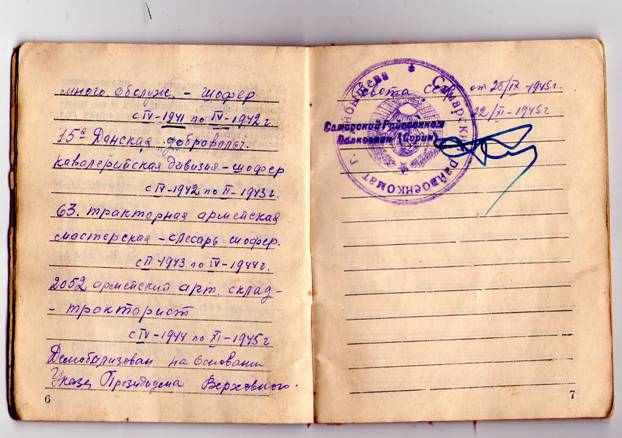 много обслуж. - шофер
с IV-1941 по IV-1942 г.
15ª Донская доброволч.
кавалерийская дивизия - шофер
с IV-1942 по II-1943 г.
63. тракторная армейская
мастерская - слесарь шофер.
с II-1943 по IV-1944 г.
2052 армейский арт. склад-
- тракторист
с IV-1944 по XI-1945 г
Демобилизован на основани
Указа Президиума Верховного.
6
Совета ССС от 25/IX-1945 г.
22/XI-1945 г.
Самарский Райвоенком
Полковник (Сорин)
Самарский райвоенкомат
7